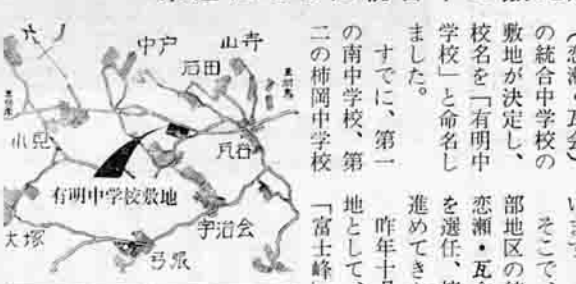 （恋瀬・瓦会）
の統合中学校の
敷地が決定し、
校名を「有明中
学校」と命名し
ました。
すでに、第一
の南中学校、第
二の柿岡中学校
います。
そこで、
部地区の
恋瀬・瓦
を選任、
進めてき
昨年十月
地として、
「富士峰」
中戸
瓦谷
小見
有明中学校敷地
宇治会
大塚
弓弦